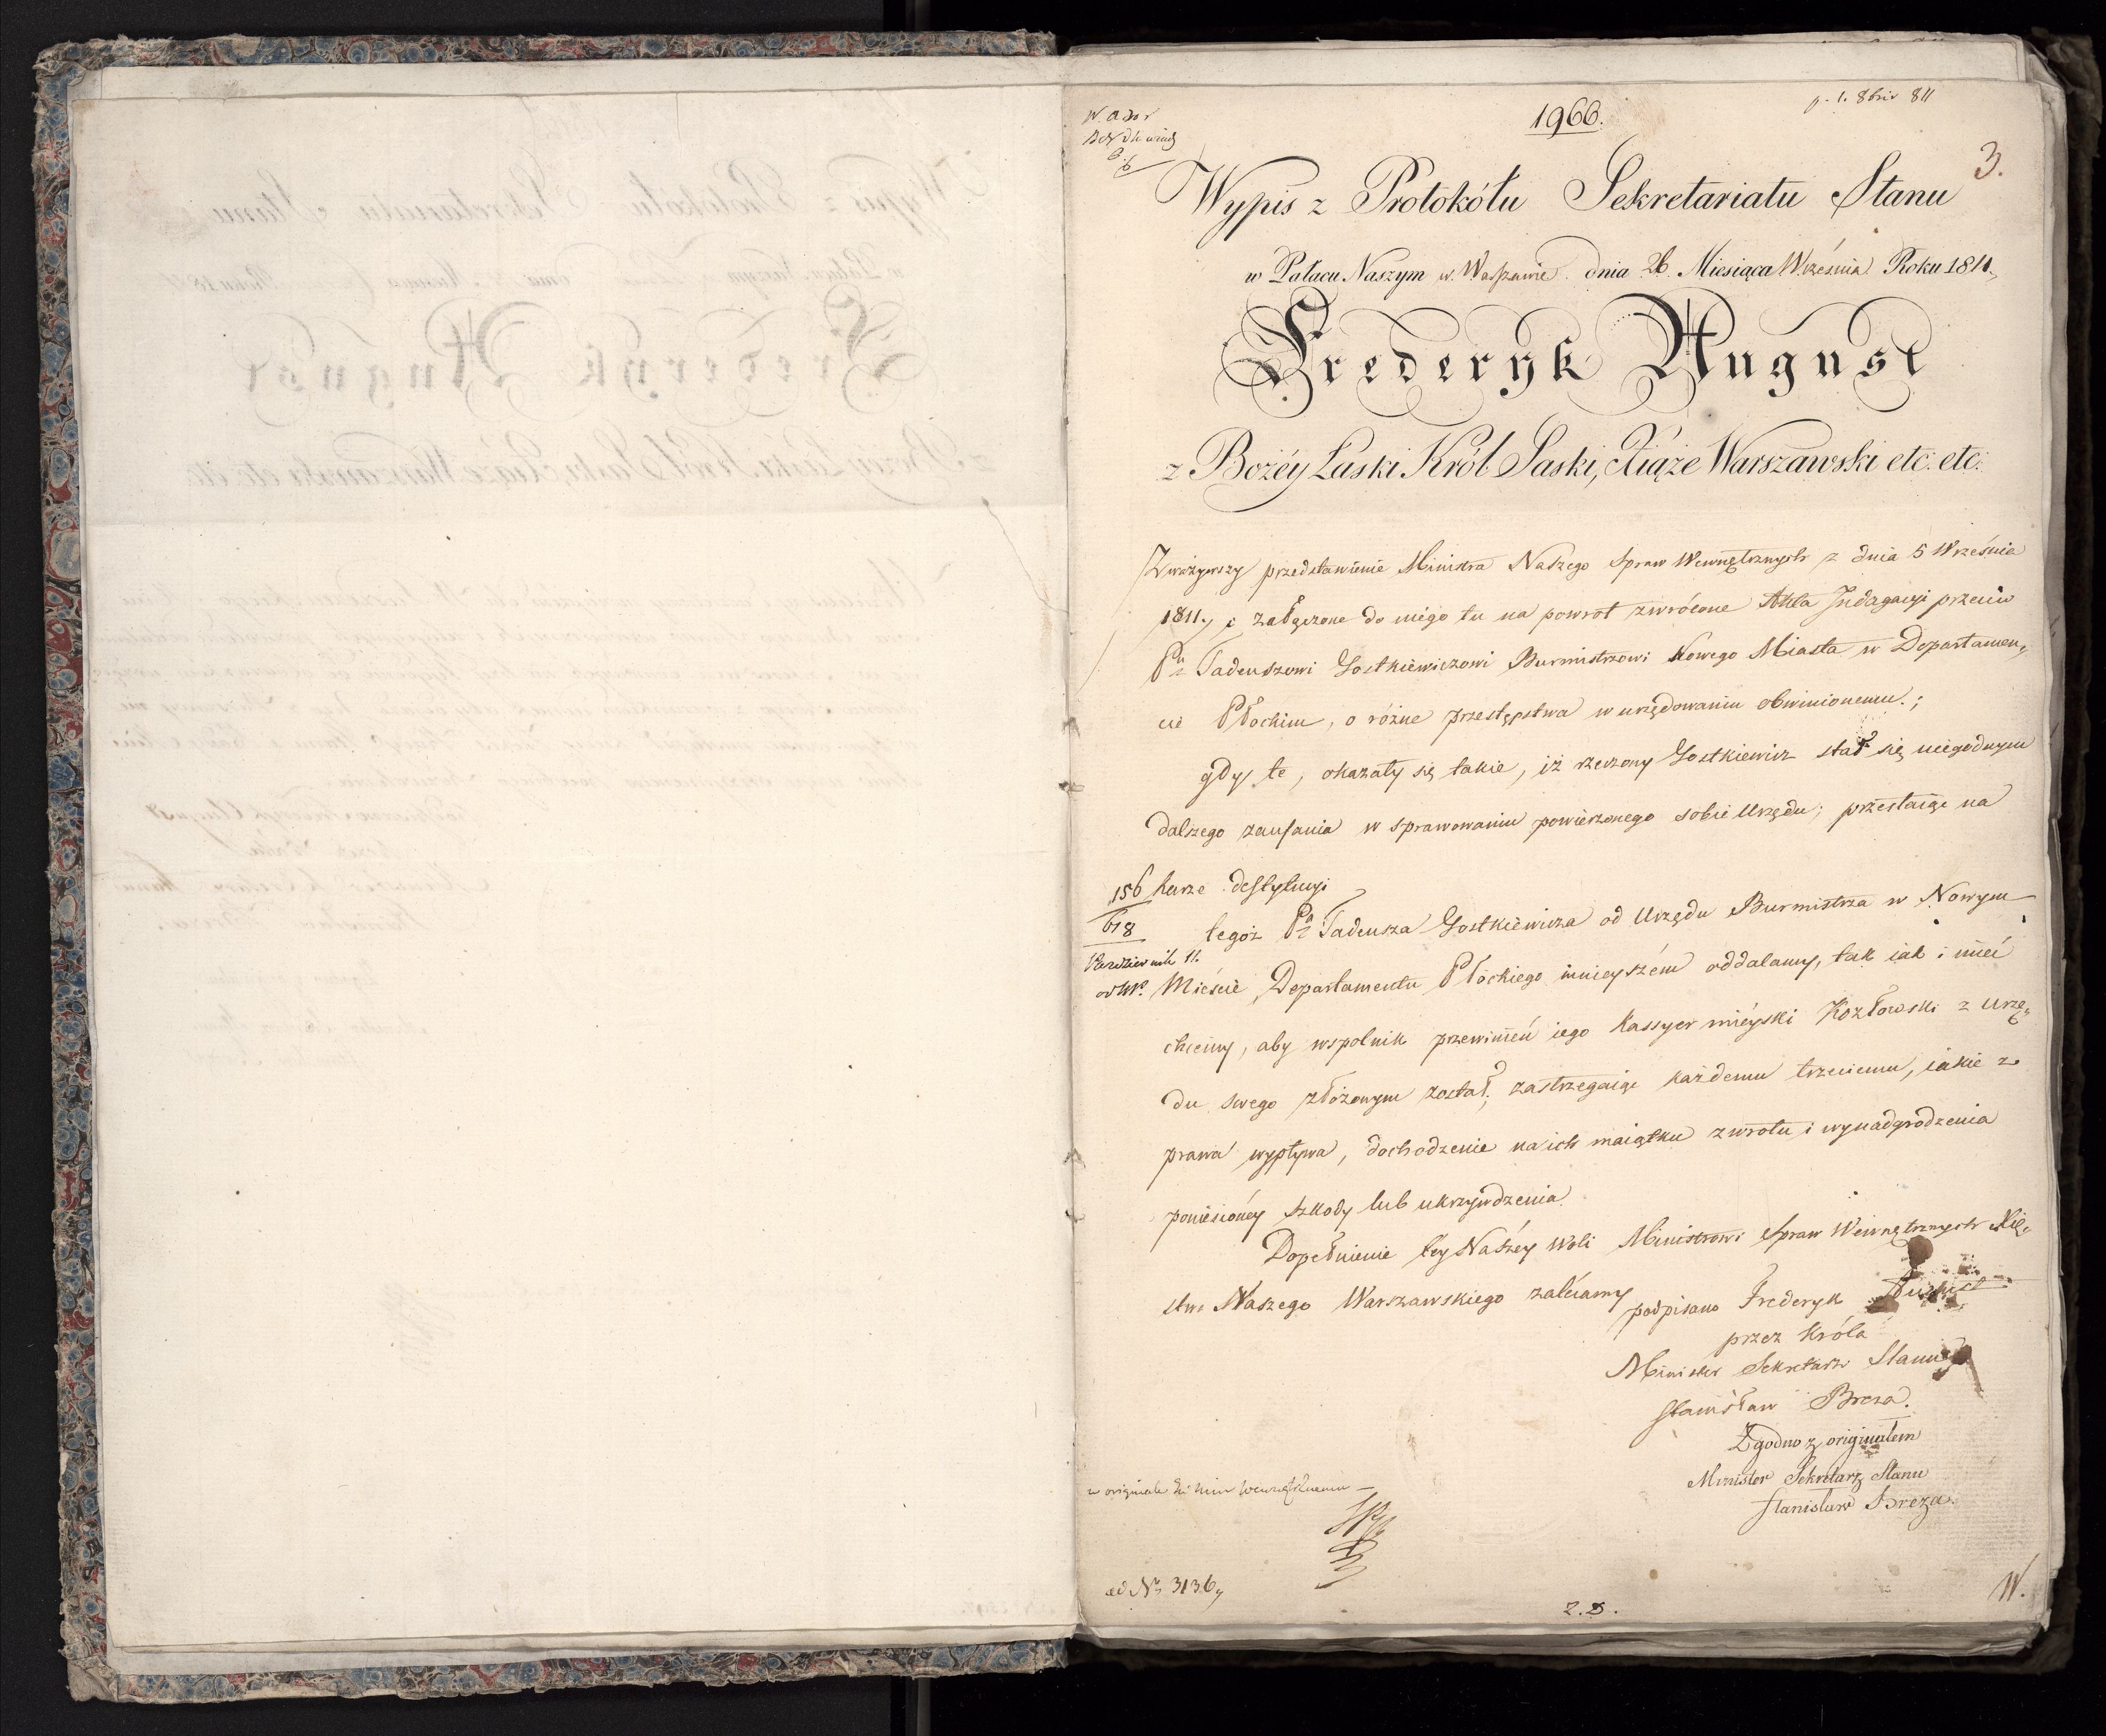 1966.
p. 1. 8bris 811
3.
Wypis z Protokółu Sekretariatu Stanu
w Pałacu Naszym w Warszawie dnia 26. Miesiąca Września Roku 1811.,
Frederyk August
z Bożéy Łaski Król Saski, Xiąże Warszawski etc: etc:
Zważywszy przedstawienie Ministra Naszego Spraw Wewnętrznych z dnia 5 Września
1811., i załączone do niégo tu na powrot zwrócone Akta Indagacyi przeciw
Pnu Tadeuszowi Gostkiewiczowi Burmistrzowi Nowego Miasta w Departamen„
cie Płockim, o różne przestępstwa w urzędowaniu obwinionemu.;
gdy te, okazały się takie, iż rzeczony Gostkiewicz stał się niegodnym
dalszego zaufania w sprawowaniu powierzonego sobie Urzędu; przestaiąc na
156 karze destytucyi
618 tegoż Pna Tadeusza Gostkiewicza od Urzędu Burmistrza w Nowym
Październik 11.
Mieście Departamentu Płockiego ninieyszém oddalamy, tak iak i mieć
chcemy, aby wspolnik przewinień iego Kassyer mieyski Kozłowski z Urzę„
du swego złożonym został; zastrzegaiąc każdemu trzeciemu, iakie z
prawa wypływa, dochodzenie na ich maiątku zwrotu i wynadgrodzenia
poniesionéy szkody lub ukrzywdzenia.
Dopełnienie téy Naszéy Woli Ministrowi Spraw Wewnętrznych Xię„
stwa Naszego Warszawskiego zalécamy
podpisano Frederyk August
przez Króla
Minister Sekretarz Stanu
Stanisław Breza.
Zgodno z originałem
Minister Sekretarz Stanu
Stanisław Breza.
w originale
ad Nr 3136„
Z.D.
W.